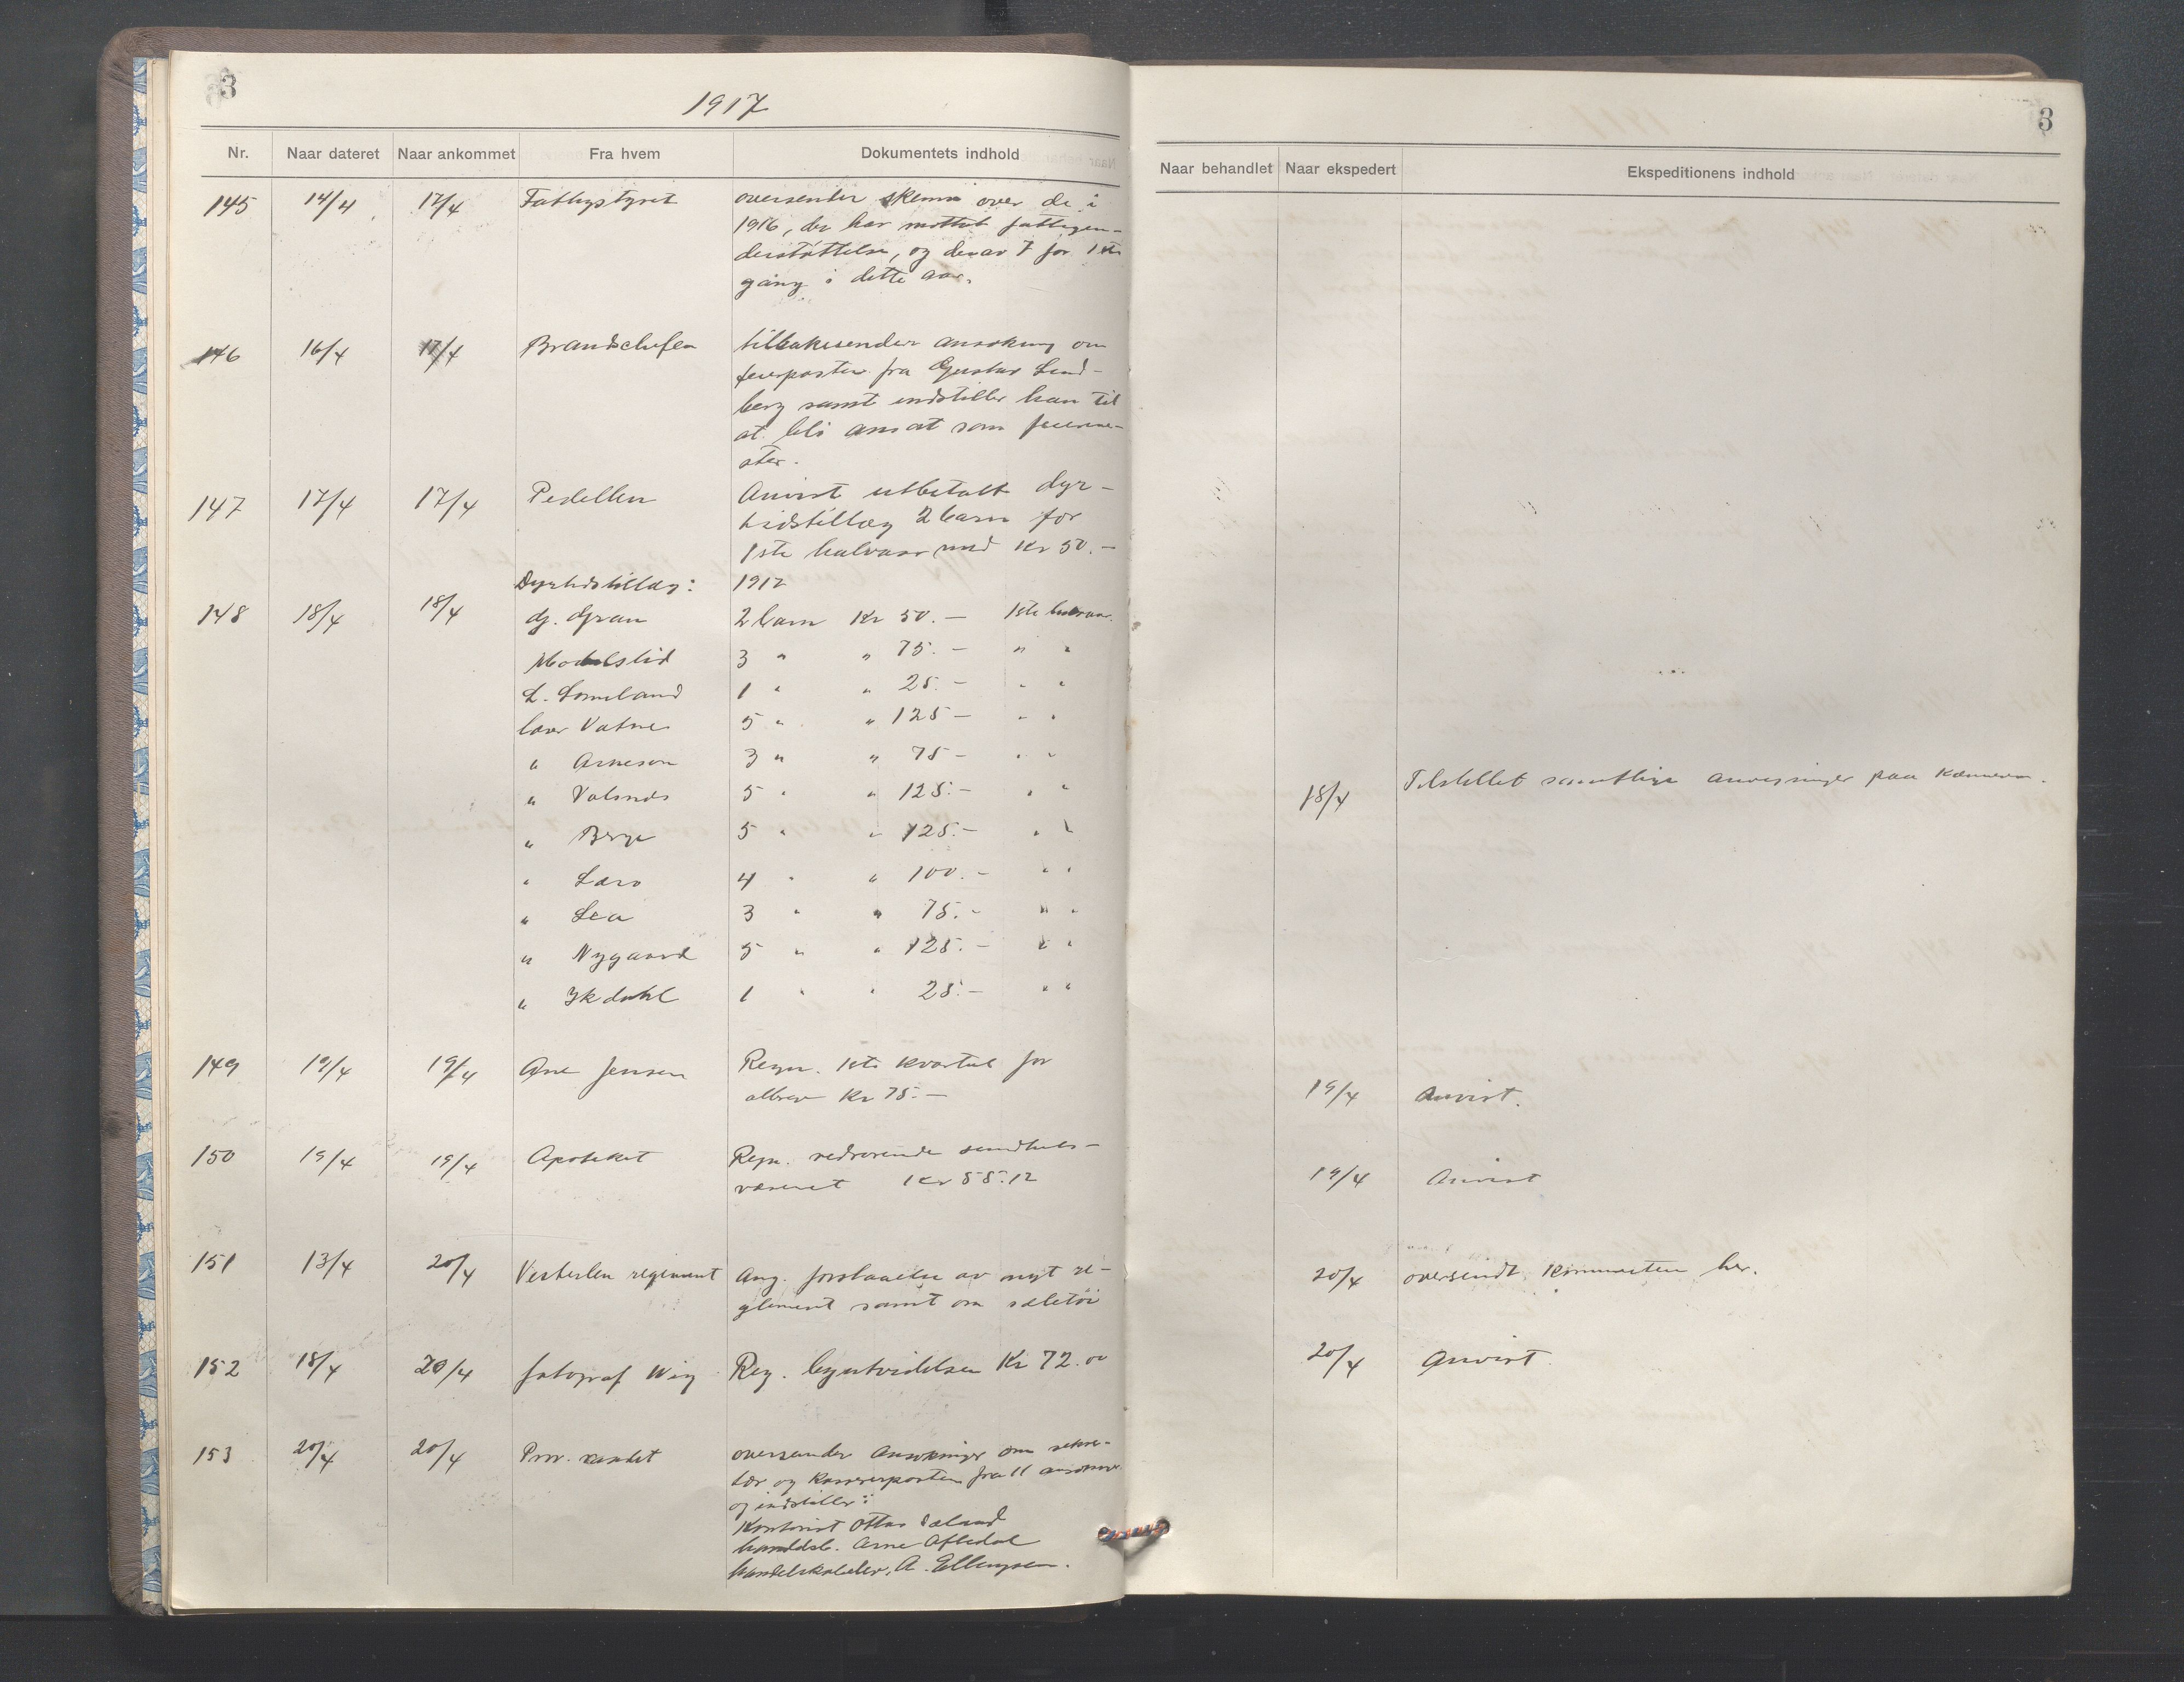 3
1917
Nr. Naar dateret Naar ankommet Fra hvem Dokumentets indhold
145 14/4 17/4 Fattigstyret oversender skema over de i
1916, der har mottat fattigun-
derstøttelse, og derav 7 for 1ste
gang i dette aar.
146 16/4 17/4 Brandchefen tilbakesender ansøkning om
feierposten fra Gustav Lind-
berg samt indstiller han til
at bli ansat som feierme-
ster.
147 17/4 17/4 Pedellen Anvist utbetalt dyr-
tidstillæg 2 barn for
1ste halvaar med Kr 50.-
Dyrtidstillæg: 1917
148 18/4 18/4 Gran 2 barn Kr 50.- 1ste halvaar.
3 " " 75.- " "
L. 1 " " 25.- " "
lærer Vatne 5 " " 125 - " "
" Arneson 3 " " 75 - " "
" 5 " " 125.- " "
" Berge 5 " " 125.- " "
" 4 " " 100.- " "
" Lea 3 " " 75.- " "
" Nygaard 5 " " 125.- " "
" Ikdahl 1 " " 25.- " "
149 19/4 19/4 Ane Jensen Regn. 1ste kvartal for
Kr 75.-
150 19/4 19/4 Apoteket Regn. vedrørende sundheds-
væsenet Kr 55.12
151 13/4 20/4 Vesterlen regiment Ang. av nyt re-
glement samt om seletøi
152 18/4 20/4 fotograf Wig Reg. byutvidelsen Kr 72.00
153 20/4 20/4 Prov. raadet oversender ansøkninger om sekre-
tær og kasserposten fra 11 ansøkere
og indstiller:
Kontorist Ottar
handelsb. Arne Aftedal
A. Ellingsen.
3
Naar behandlet Naar ekspedert Ekspeditionens indhold
18/4 Tilstillet samtlige anvisninger paa kæmneren.
19/4 Anvist.
19/4 Anvist
20/4 oversendt her.
20/4 Anvist.